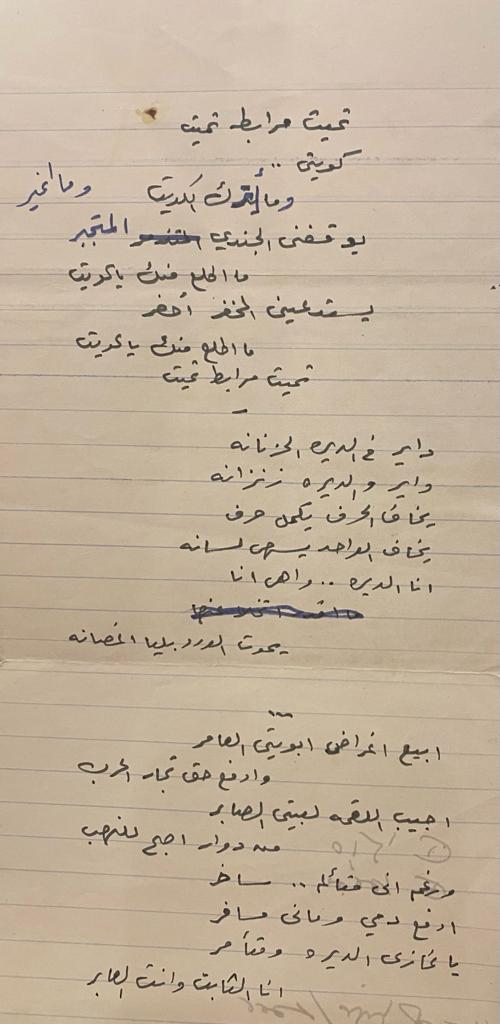 تميت مرابط تميت
كويتي ..
وما أترك الكويت وما اغير
يوقفني الجندي المتجبر
ما اطلع منك ياكويت
يستدعيني المخفر أحضر
ما اطلع منك ياكويت
تميت مرابط تميت
داير في الديره الحزنانه
داير والديره زنزانه
يخاف الحرف يكمل حرف
يخاف الواحد يسمي لسانه
انا الديره .. واهي انا
يموت الورد بليا اغصانه
ابيع اغراض ابويتي العامر
وادفع حق تجار الحرب
اجيب اللقمه لبيتي الصابر
من دوار اصبح للنهب
ورغم اني متألم .. ساخر
ادفع دمي وماني مسافر
يا غازي الديره ومتآمر
انا الثابت وانت العابر